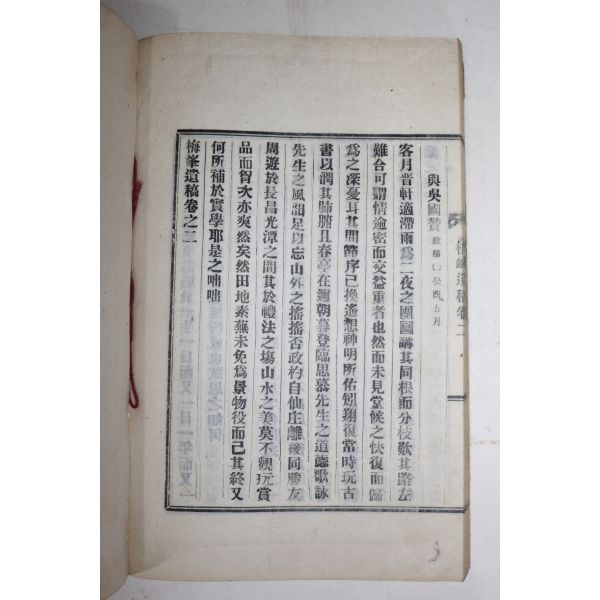 與吳國賛 政楠 癸酉五月
客月晋軒適滯雨爲二夜之團圝講其同根而分枝歎其路左
難合可謂情逾密而交益重者也然而未見堂候之快復而歸
爲之深憂耳其間節序已換遙想神明所佑匑翔復常時玩古
書以潤其肺腑且春亭在邇朝暮登臨思慕先生之道德歌詠
先生之風韻足以忘山外之搖搖否政杓自仙庄離後同勝友
周遊於長昌光潭之間其於禮法之塲山水之美莫不觀玩賞
品而胷次亦爽然矣然田地素蕪未免爲景物役而已其終又
何所補於實學耶是之咄咄
梅峯遺稿卷之二
梅峯遺稿卷二